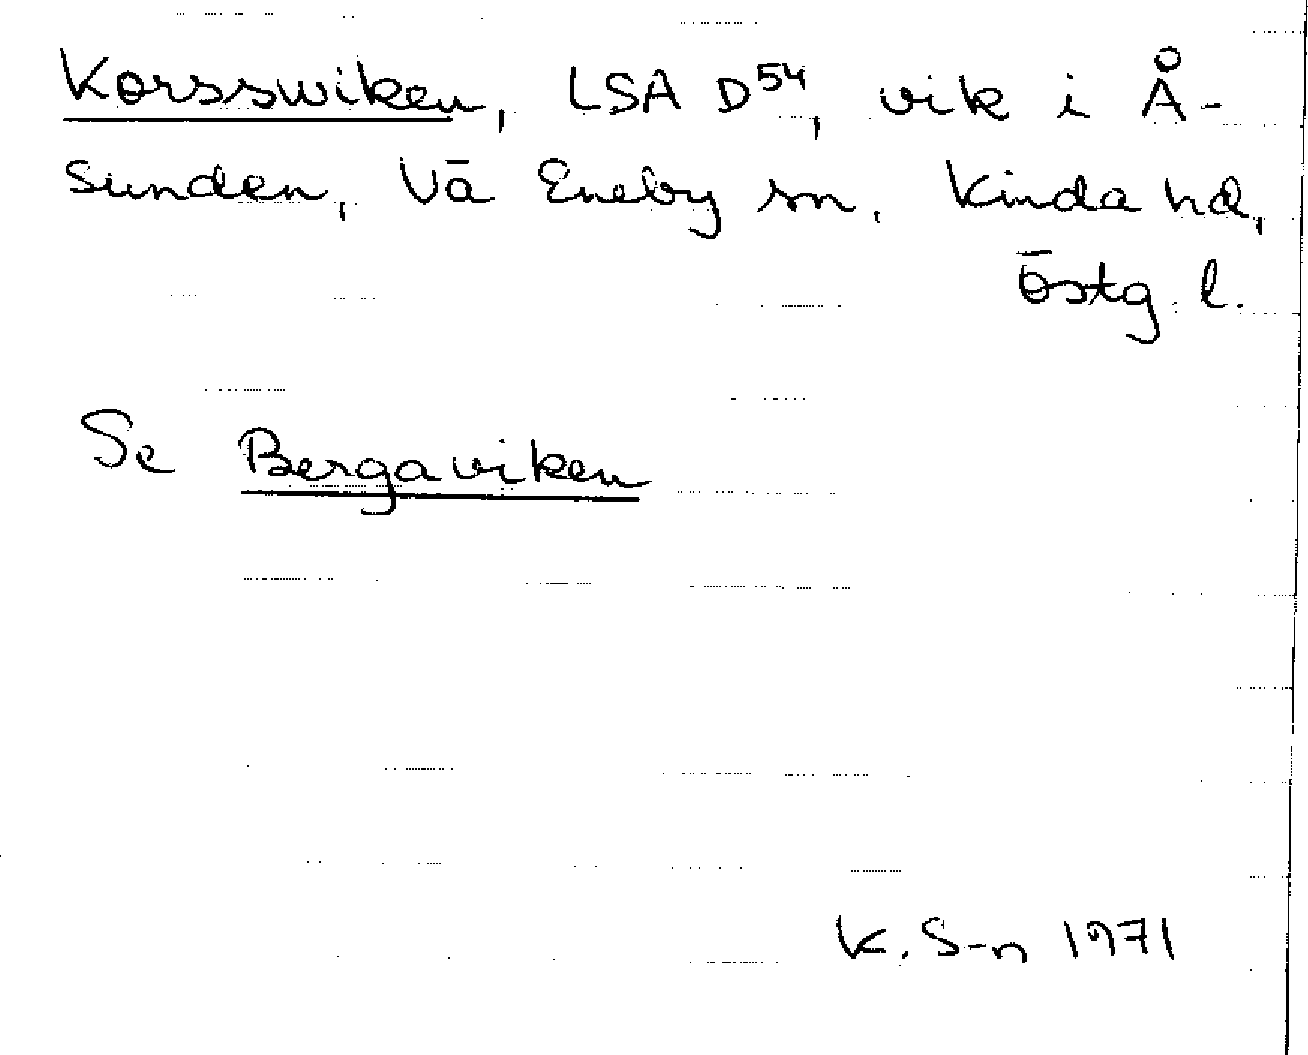 Korsswiken, LSA D54, vik i Å-
sunden, Vä Eneby sn, Kinda hd,
Östg. l.
Se Bergaviken
K. S-n 1971